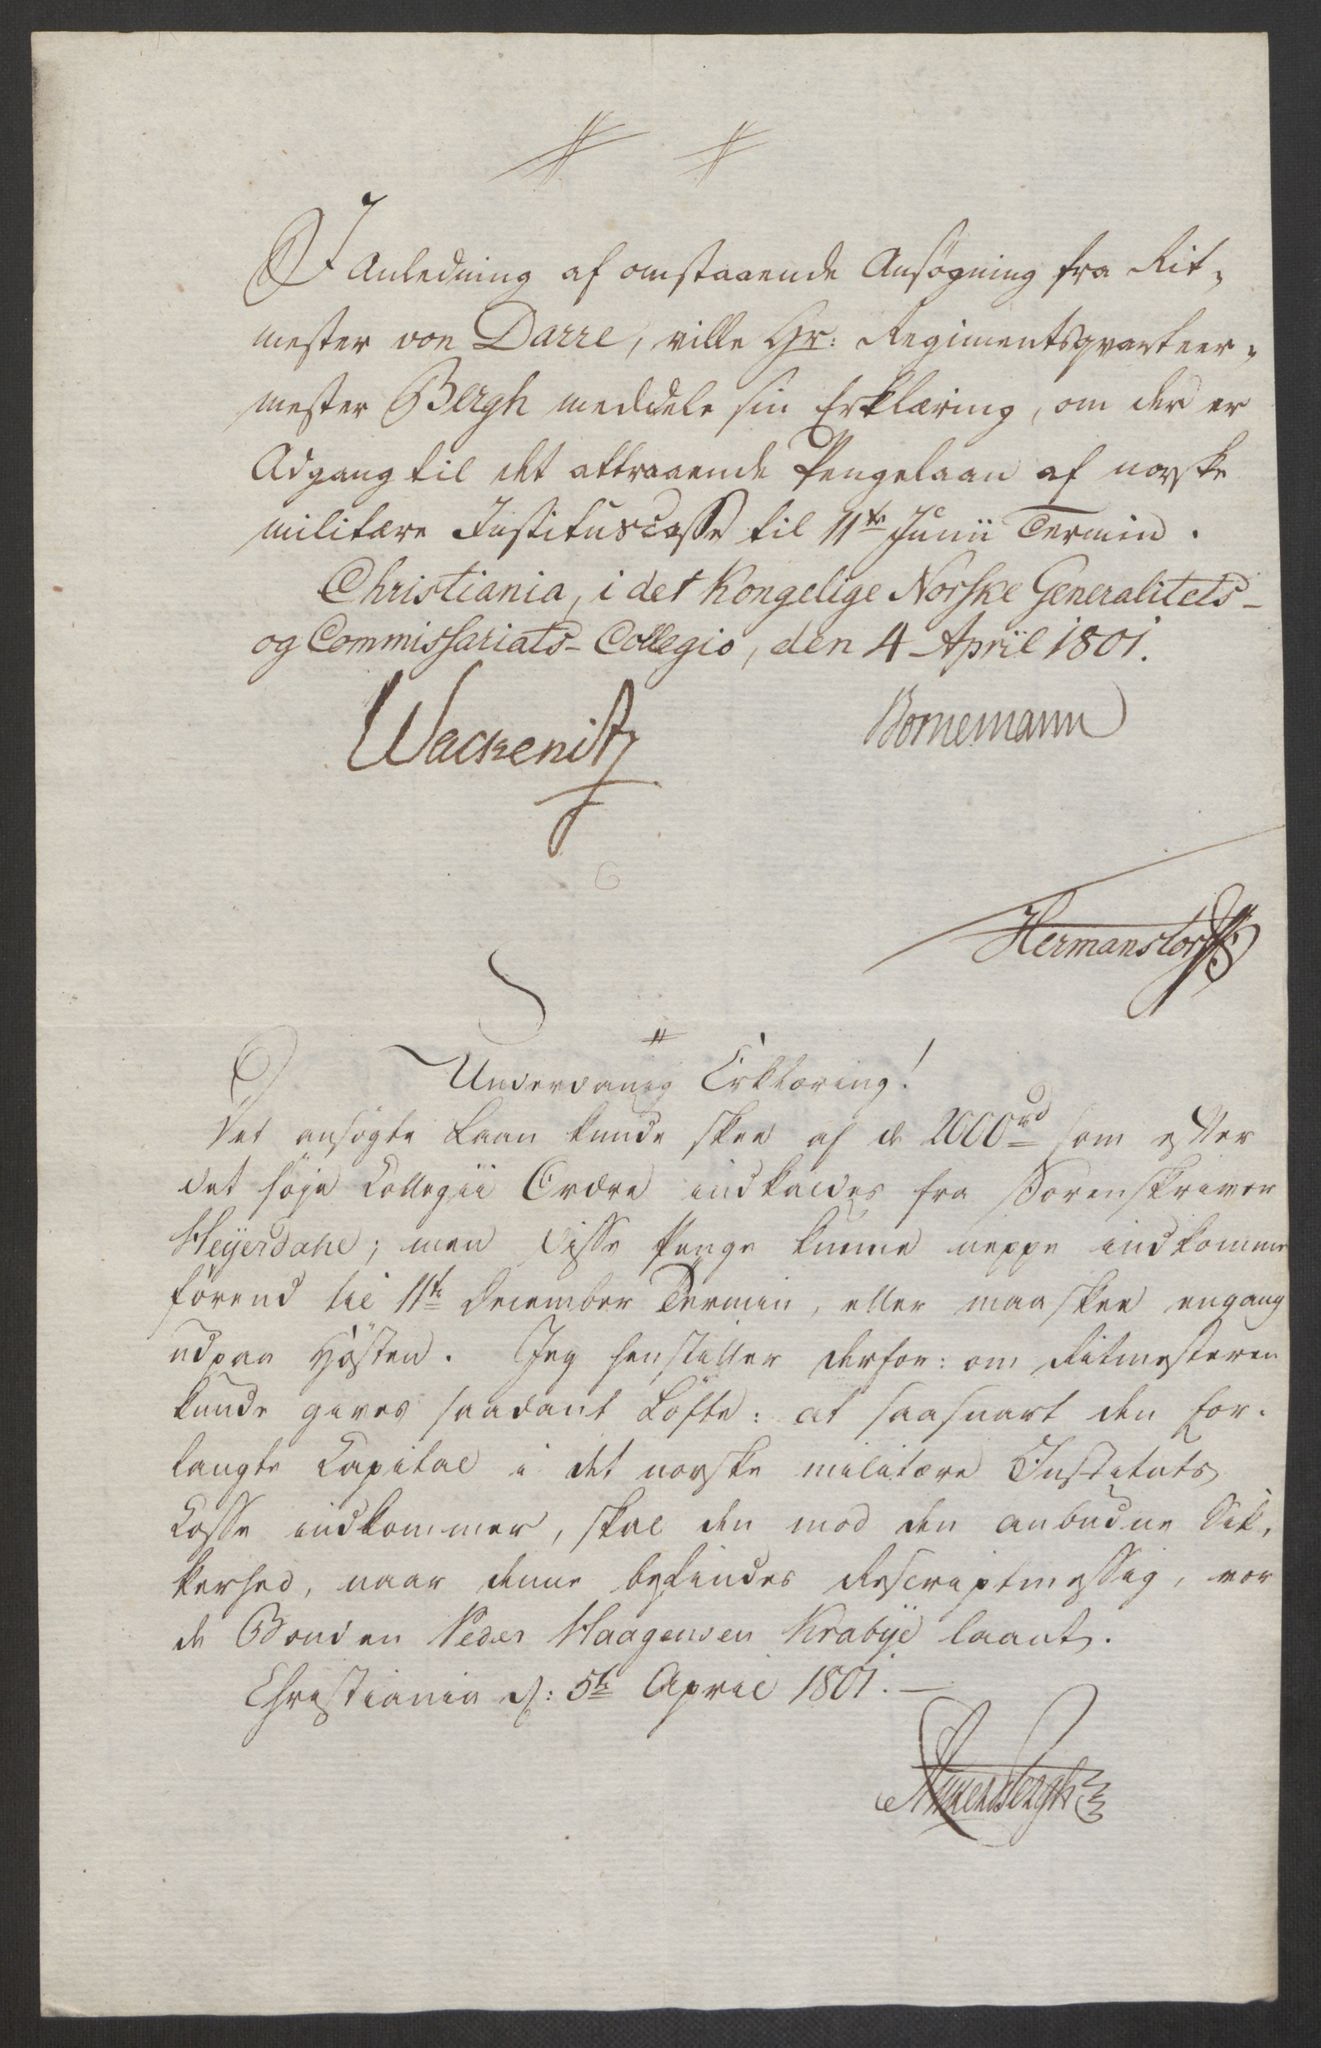 I Anledning af omstaaende Ansøgning fra Rit-
mester von Darre, ville Hr: Regimentsqvarteer-
mester Bergh meddele sin Erklæring, om der er
Adgang til det attraaende Pengelaan af norske
militære Institutscasse til 11te Junii Termin.
Christiania, i det Kongelige Norske Generalitets-
og Commissariats-Collegio, den 4 April 1801.
Wackenitz
Bornemann
Hermanstorff
Underdanig Erklæring!
Det ansøgte Laan kunde skee af de 2000rd som efter
det høje Collegii Ordre indkaldes fra Sorenskriver
Heyerdahl; men disse Penge kunne neppe indkomme
førend til 11te December Termin, eller maaskee engang
udpaa Høsten. Jeg henstiller derfor: om Ritmesteren
kunde gives saadant Løfte: at saasnart den for-
langte Capital i det norske militære Instituts
Casse indkommer, skal den mod den anbudne Sik-
kerhed, naar denne befindes Rescriptmessig, vor-
de Bonden Peder Haagensen Krabye laant.
Christiania d: 5te April 1801.
Bergh